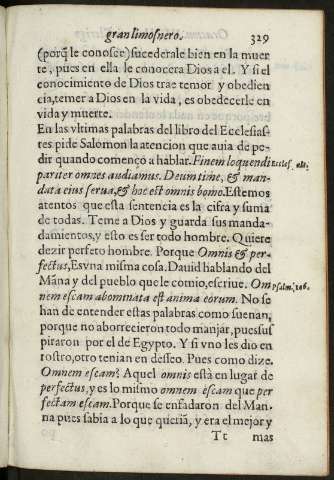 gran limosnero. 329
(porq̃ le conoser) sucederale bien en la muer
te, pues en ella le conocera Dios a el. Y si el
conocimiento de Dios trae temor y obedien
cia, temer a Dios en la vida, es obedecerle en
vida y muerte.
En las vltimas palabras del libro del Ecclesias-
tes pide Salomon la atencion que auia de pe-
dir quando començò a hablar. Finem loquendi Eccles. vlt.
pariter omnes audiamus. Deum time, & man-
data eius serua, & hoc est omnis homo. Estemos
atentos que esta sentencia es la cifra y suma
de todas. Teme a Dios y guarda sus manda-
damientos, y esto es ser todo hombre. Quiere
dezir perfeto hombre. Porque Omnis & per-
fectus, Es vna misma cosa. Dauid hablando del
Mãna y del pueblo que le comio, escriue. Om Psalm. 106.
nem escam abominata est anima eorum. No se
han de entender estas palabras como suenan,
porque no aborrecieron todo manjar, pues sus
piraron por el de Egypto. Y si vno les dio en
rostro, otro tenian en desseo. Pues como dize.
Omnem escam? Aquel omnis està en lugar de
perfectus, y es lo mismo omnem escam que per
fectam escam. Porque se enfadaron del Man-
na pues sabia a lo que queriã, y era el mejor y
Tt mas